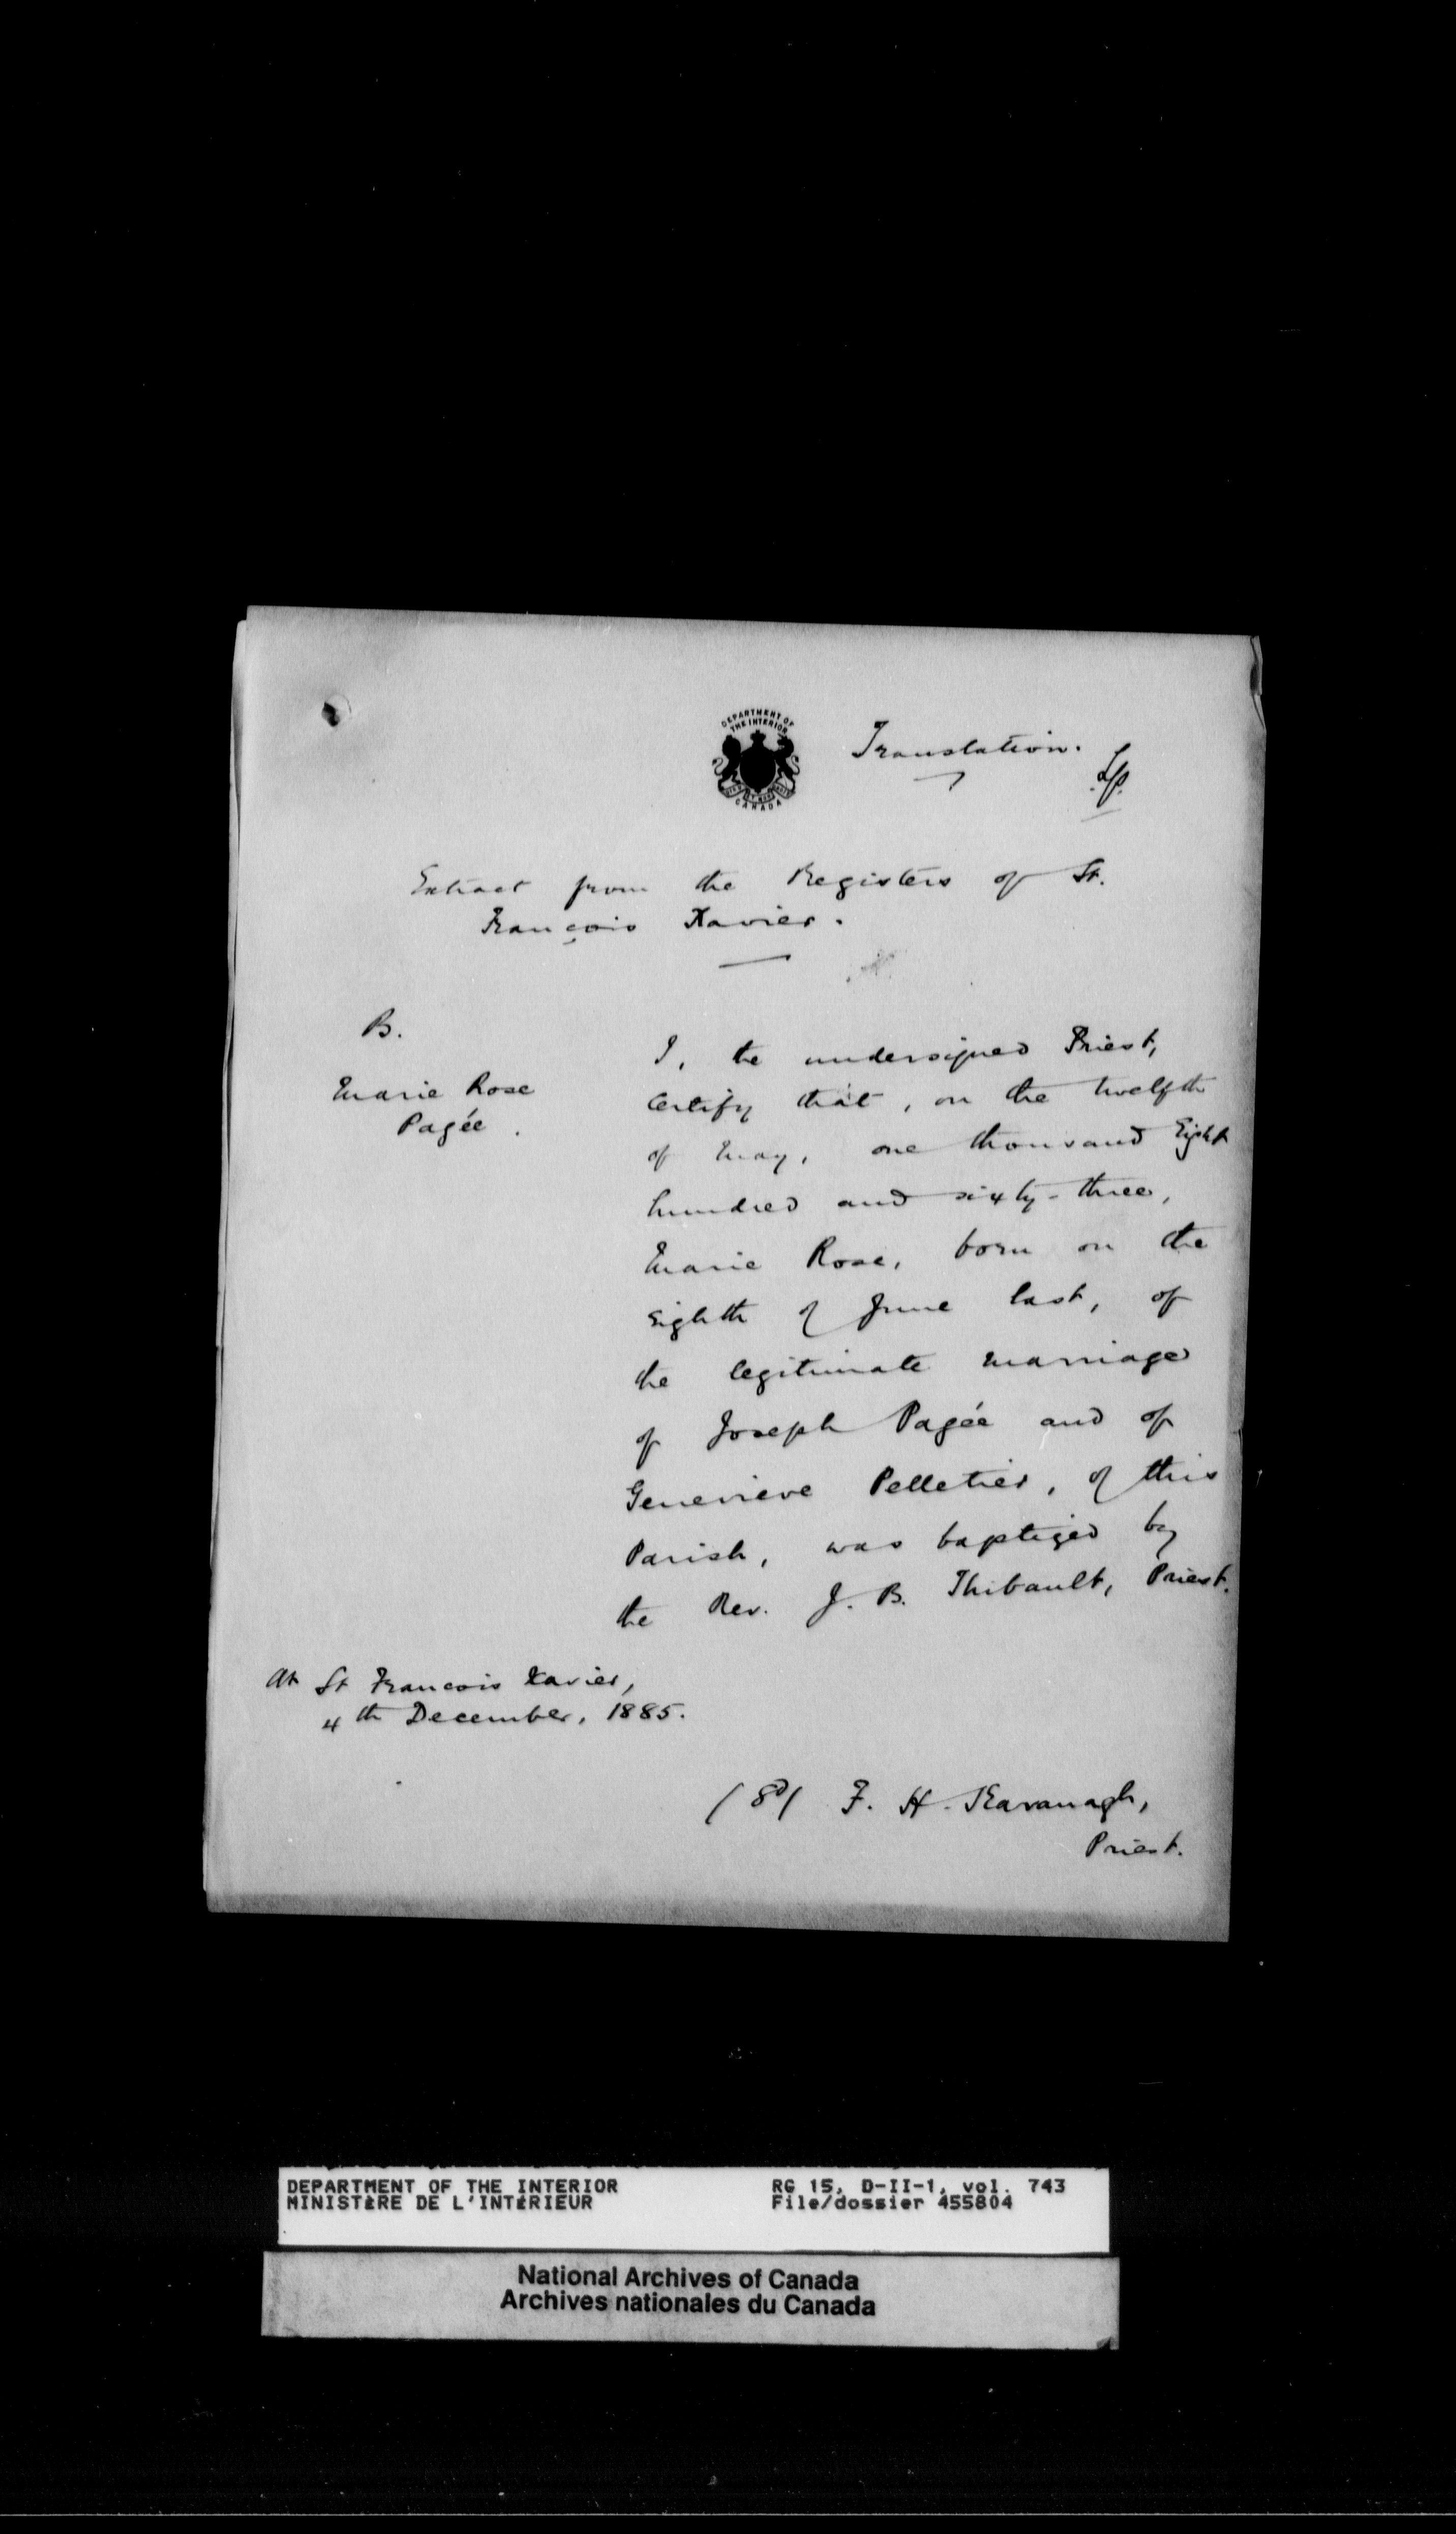 DEPARTMENT OF
THE INTERIOR
CANADA
Translation.
Extract from the Registers of St.
François Xavier.
B.
Marie Rose
Pagée.
I, the undersigned Priest,
Certify that, on the twelfth
of May, one thousand Eight
hundred and sixty-three,
Marie Rose, born on the
Eighth of June last, of
the legitimate marriage
of Joseph Pagée and of
Genevieve Pelletier, of this
Parish, was baptized by
the Rev. J. B. Thibault, Priest.
At St Francois Xavier,
4th December, 1885.
(Sd) F. H. Kavanagh,
Priest.
DEPARTMENT OF THE INTERIOR
MINISTÈRE DE L'INTÉRIEUR
RG 15, D-II-1, vol. 743
File/dossier 455804
National Archives of Canada
Archives nationales du Canada